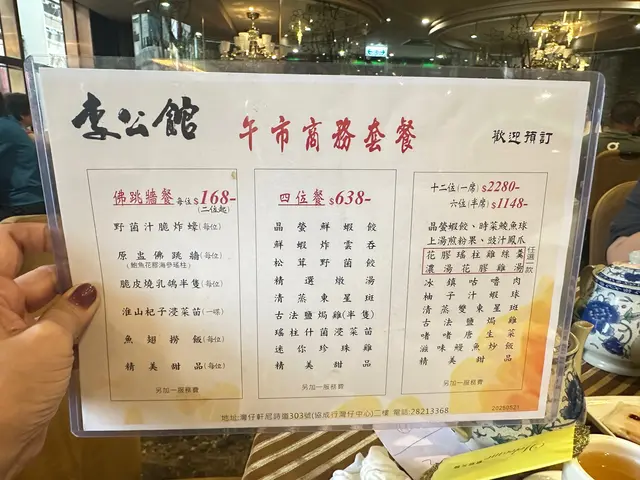 李公館
午市商務套餐
歡迎預訂
佛跳牆餐 每位$168-
(二位起)
野菌汁脆炸蠔(每位)
原盅佛跳牆(每位)
(鮑魚花膠海參瑤柱)
脆皮燒乳鴿半隻(每位)
淮山杞子浸菜苗(一碟)
魚翅撈飯(每位)
精美甜品(每位)
另加一服務費
四位餐$638-
晶瑩鮮蝦餃
鮮蝦炸雲吞
松茸野菌餃
精選燉湯
清蒸東星斑
古法鹽焗雞(半隻)
瑤柱什菌浸菜苗
迷你珍珠雞
精美甜品
另加一服務費
十二位(一席)$2280-
六位(半席)$1148-
晶瑩蝦餃、時菜鯪魚球
上湯煎粉果、豉汁鳳爪
花膠瑤柱雞絲羹
濃湯花膠雞湯
任選一款
冰鎮咕嚕肉
柚子汁蝦球
清蒸雙東星斑
古法鹽焗雞
啫啫唐生菜
滋味鰻魚炒飯
精美甜品
另加一服務費
地址:灣仔軒尼詩道303號(協成行灣仔中心)二樓 電話:28213368
20250521
Welcome